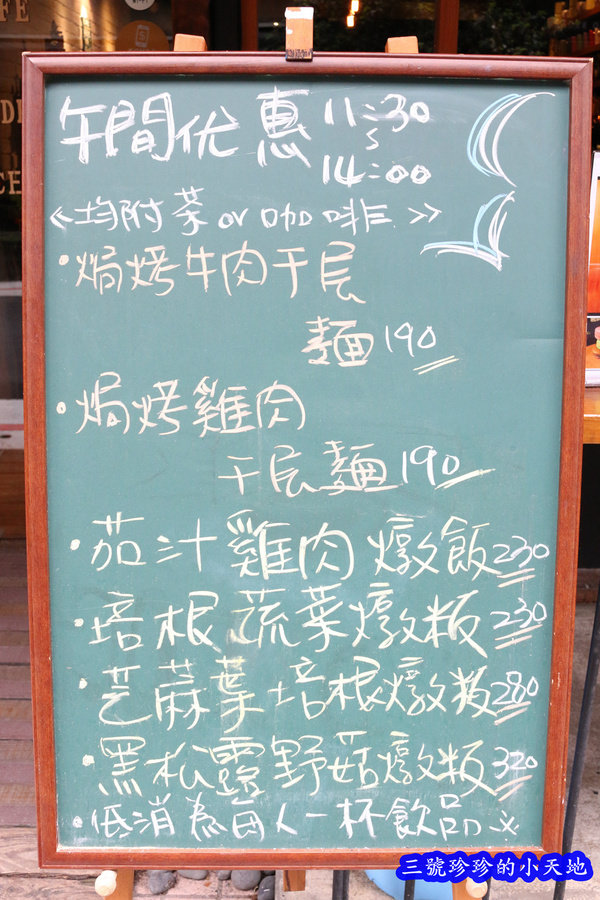 午間优惠 11:30
~
14:00
<<均附茶 or 咖啡>>
·焗烤牛肉千层
麵 190
·焗烤雞肉
千层麵 190
·茄汁雞肉燉飯 230
·培根蔬菜燉飯 230
·芝蔴葉培根燉飯 280
·黑松露野菇燉飯 320
·低消為每人一杯飲品
三號珍珍的小天地